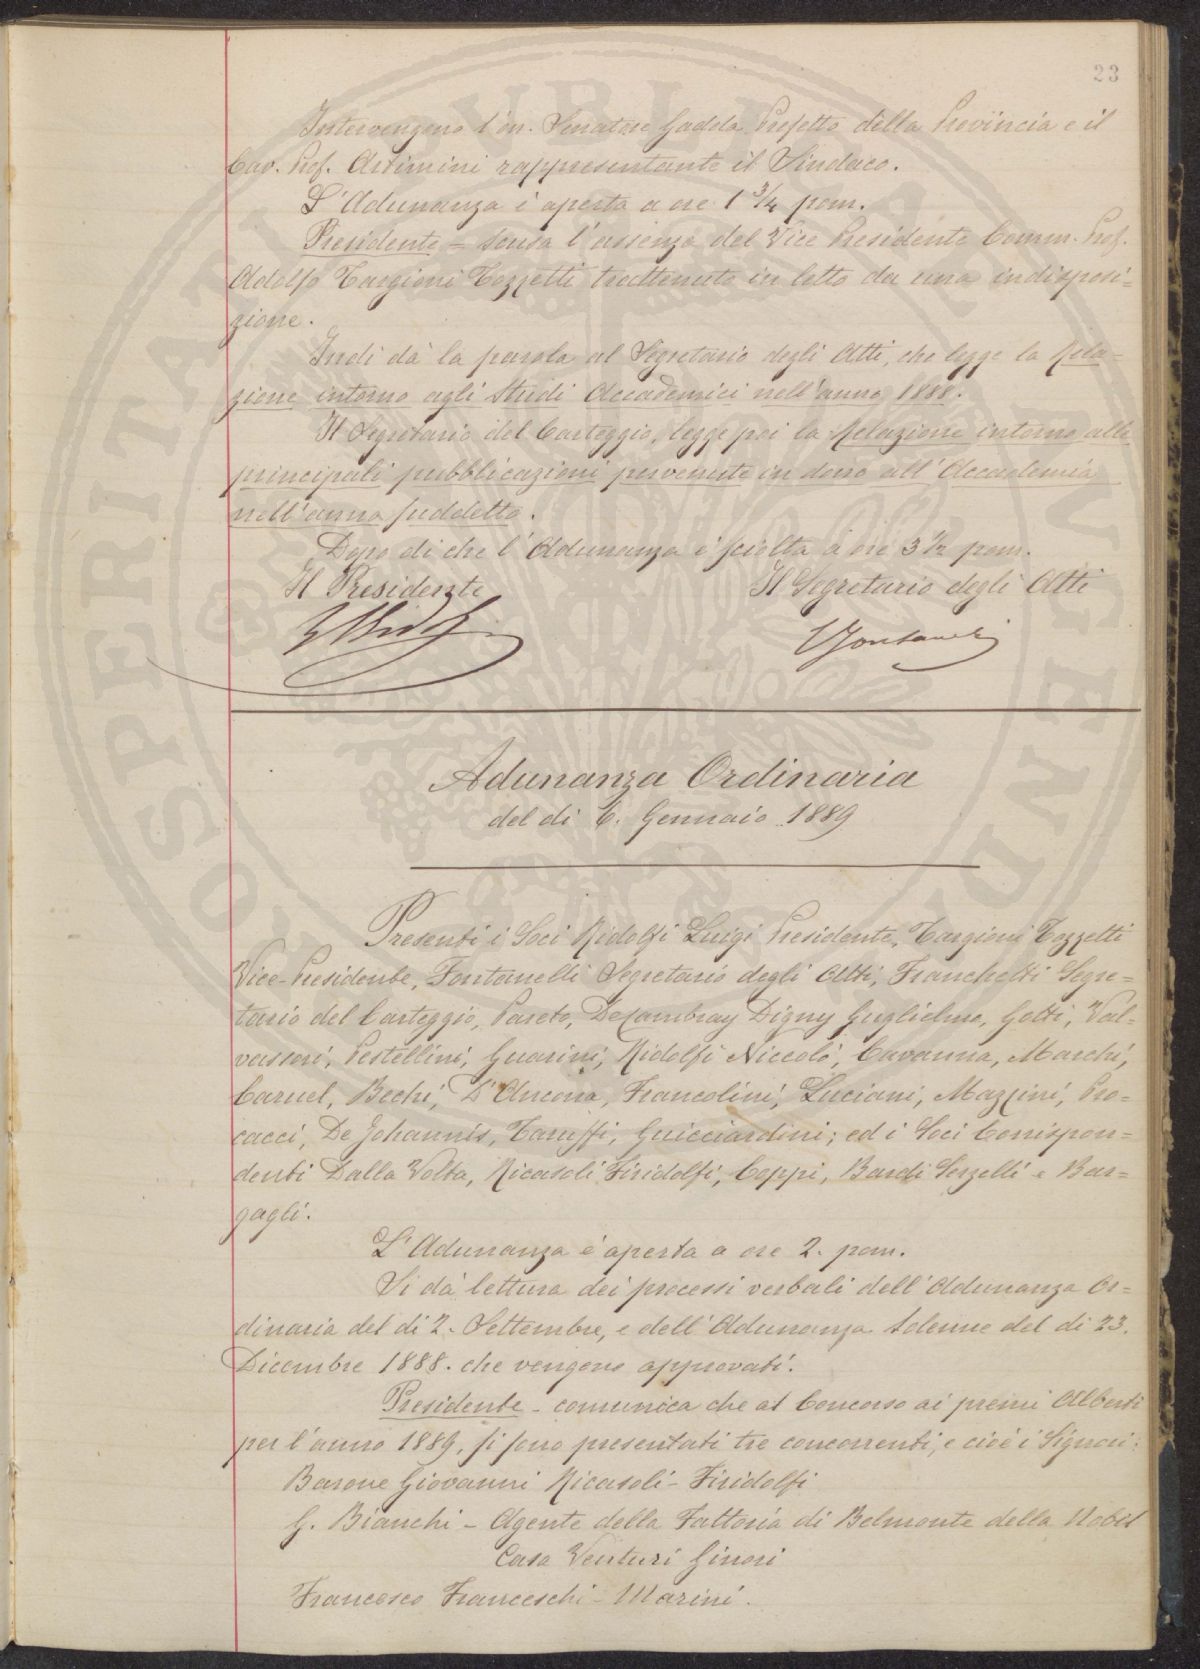 23
Intervengono l'on. Senatore Gadda Prefetto della Provincia e il
Cav. Prof. Artimini rappresentante il Sindaco.
L'Adunanza è aperta a ore 1 3/4 pom.
Presidente = scusa l'assenza del Vice Presidente Comm. Prof.
Adolfo Targioni Tozzetti trattenuto in letto da una indisposi=
zione.
Indi dà la parola al Segretario degli Atti, che legge la Rela=
zione intorno agli Studi Accademici nell'anno 1888.
Il Segretario del Carteggio, legge poi la Relazione intorno alle
principali pubblicazioni pervenute in dono all'Accademia
nell'anno suddetto.
Dopo di che l'Adunanza è sciolta a ore 3 1/2 pom.
Il Presidente Il Segretario degli Atti
LRidolfi CFontanelli
Adunanza Ordinaria
del di 6. Gennaio 1889
Presenti i Soci Ridolfi Luigi Presidente, Targioni Tozzetti
Vice-Presidente, Fontanelli Segretario degli Atti, Franchetti Segre=
tario del Carteggio, Pareto, De Cambray Digny Guglielmo, Gotti, Val=
vassori, Pestellini, Guarini, Ridolfi Niccolò, Cavanna, Marchi,
Caruel, Bechi, D'Ancona, Francolini, Luciani, Mazzini, Pro=
cacci, De Johannis, Taruffi, Guicciardini; ed i Soci Corrispon=
denti Dalla Volta, Ricasoli Firidolfi, Coppi, Bardi Serzelli e Bar=
gagli.
L'Adunanza è aperta a ore 2. pom.
Si dà lettura dei processi verbali dell'Adunanza Or=
dinaria del di 2. Settembre, e dell'Adunanza Solenne del di 23.
Dicembre 1888. che vengono approvati.
Presidente - comunica che al Concorso ai premi Alberti
per l'anno 1889, si sono presentati tre concorrenti, e cioè i Signori:
Barone Giovanni Ricasoli-Firidolfi
G. Bianchi - Agente della Fattoria di Belmonte della Nobil
Casa Venturi Ginori
Francesco Franceschi-Marini.